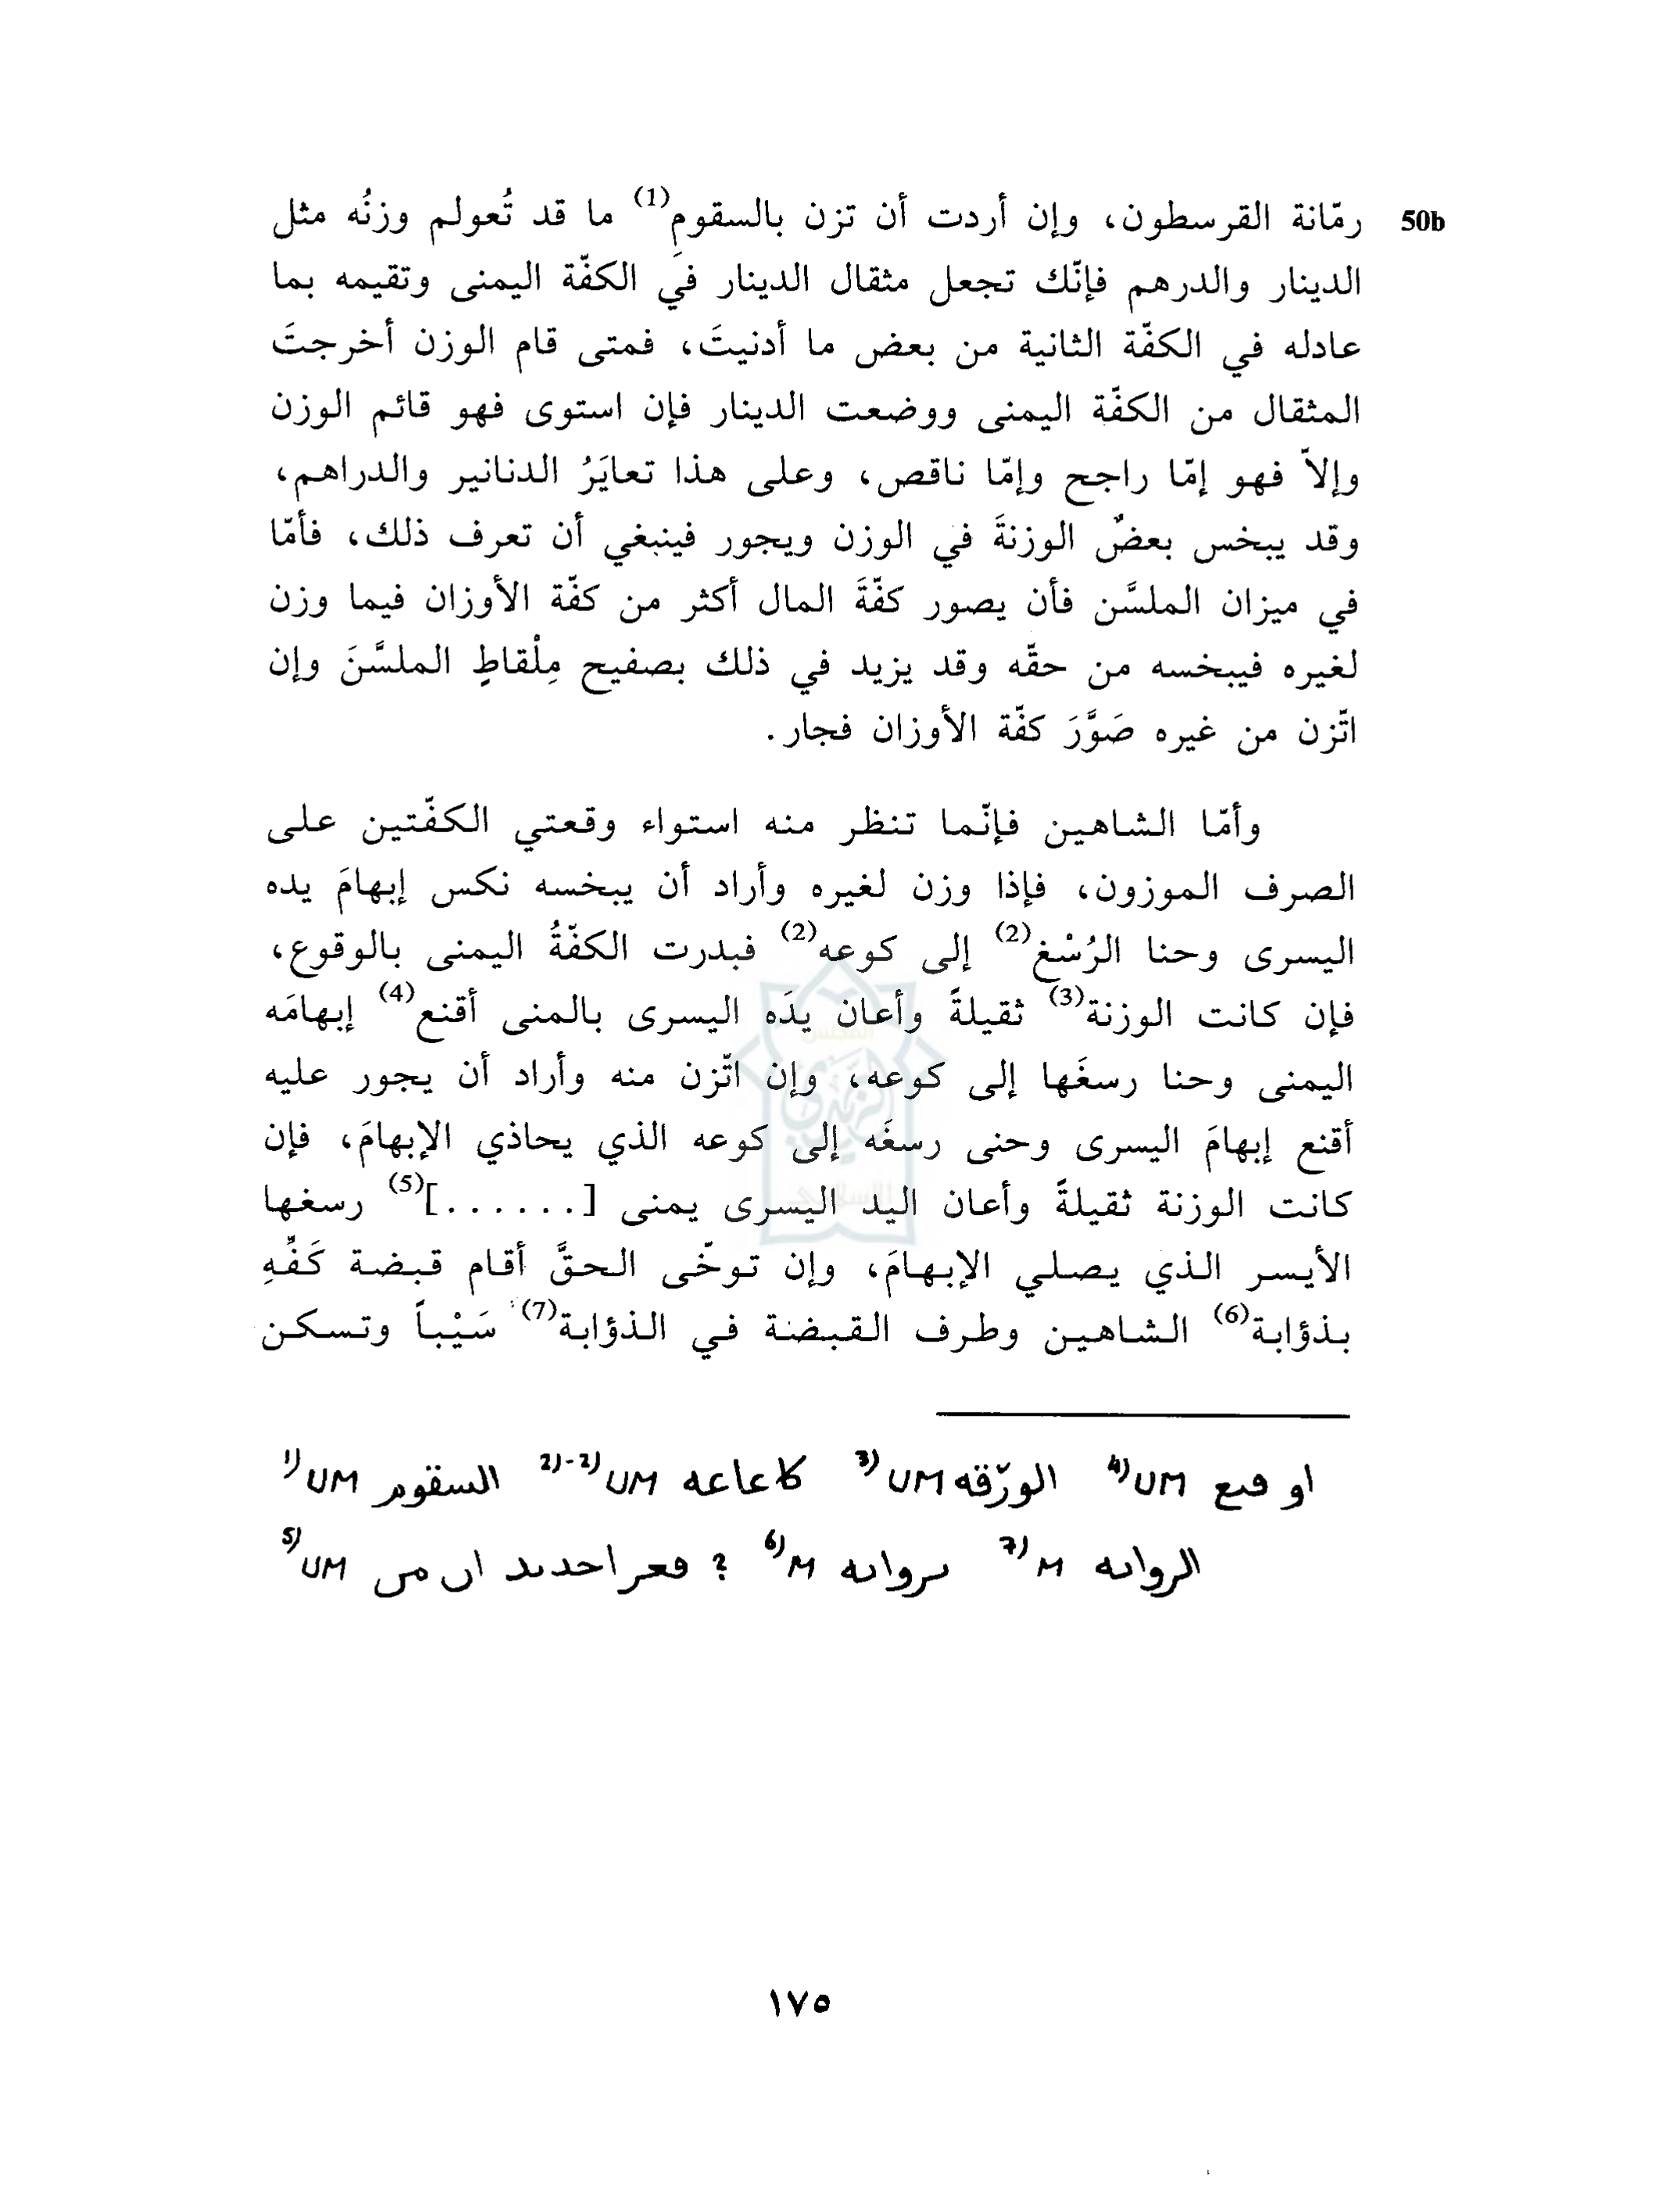 50b رمّانة القرسطون، وإن أردت أن تزن بالسقومِ(1) ما قد تُعولم وزنُه مثل
الدينار والدرهم فإنّك تجعل مثقال الدينار في الكفّة اليمنى وتقيمه بما
عادله في الكفّة الثانية من بعض ما أدنيتَ، فمتى قام الوزن أخرجتَ
المثقال من الكفّة اليمنى ووضعت الدينار فإن استوى فهو قائم الوزن
وإلاّ فهو إمّا راجح وإمّا ناقص، وعلى هذا تعايَرُ الدنانير والدراهم،
وقد يبخس بعضُ الوزنةَ في الوزن ويجور فينبغي أن تعرف ذلك، فأمّا
في ميزان الملسَّن فأن يصور كفّةَ المال أكثر من كفّة الأوزان فيما وزن
لغيره فيبخسه من حقّه وقد يزيد في ذلك بصفيح مِلْقاطٍ الملسَّنَ وإن
اتّزن من غيره صَوَّرَ كفّة الأوزان فجار.
وأمّا الشاهين فإنّما تنظر منه استواء وقعتي الكفّتين على
الصرف الموزون، فإذا وزن لغيره وأراد أن يبخسه نكس إبهامَ يده
اليسرى وحنا الرُسْغ(2) إلى كوعه(2) فبدرت الكفّةُ اليمنى بالوقوع،
فإن كانت الوزنة(3) ثقيلةً وأعان يدَه اليسرى بالمنى أقنع(4) إبهامَه
اليمنى وحنا رسغَها إلى كوعه، وإن اتّزن منه وأراد أن يجور عليه
أقنع إبهامَ اليسرى وحنى رسغَه إلى كوعه الذي يحاذي الإبهامَ، فإن
كانت الوزنة ثقيلةً وأعان اليد اليسرى يمنى [......](5) رسغها
الأيسر الذي يصلي الإبهامَ، وإن توخّى الحقَّ أقام قبضة كَفِّهِ
بذؤابة(6) الشاهين وطرف القبضة في الذؤابة(7) سَيْباً وتسكن
1) UM السقوم 2)-2) UM كاعاعه 3) UM الورّقه 4) UM او فىع
5) UM ان مى ? 6) M ىرواىه 7) M الرواىه
١٧٥